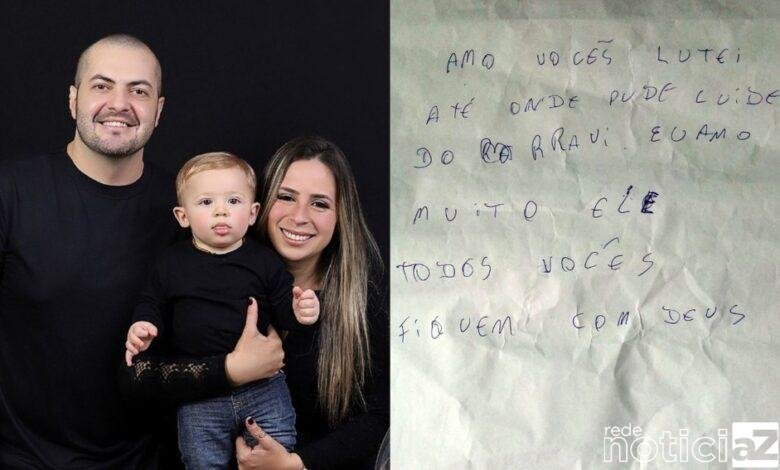 AMO VOCÊS LUTEI
ATÉ ONDE PUDE CUIDE
DO RRAVI. EU AMO
MUITO ELE
TODOS VOCÊS
FIQUEM COM DEUS
rede
noticiaz